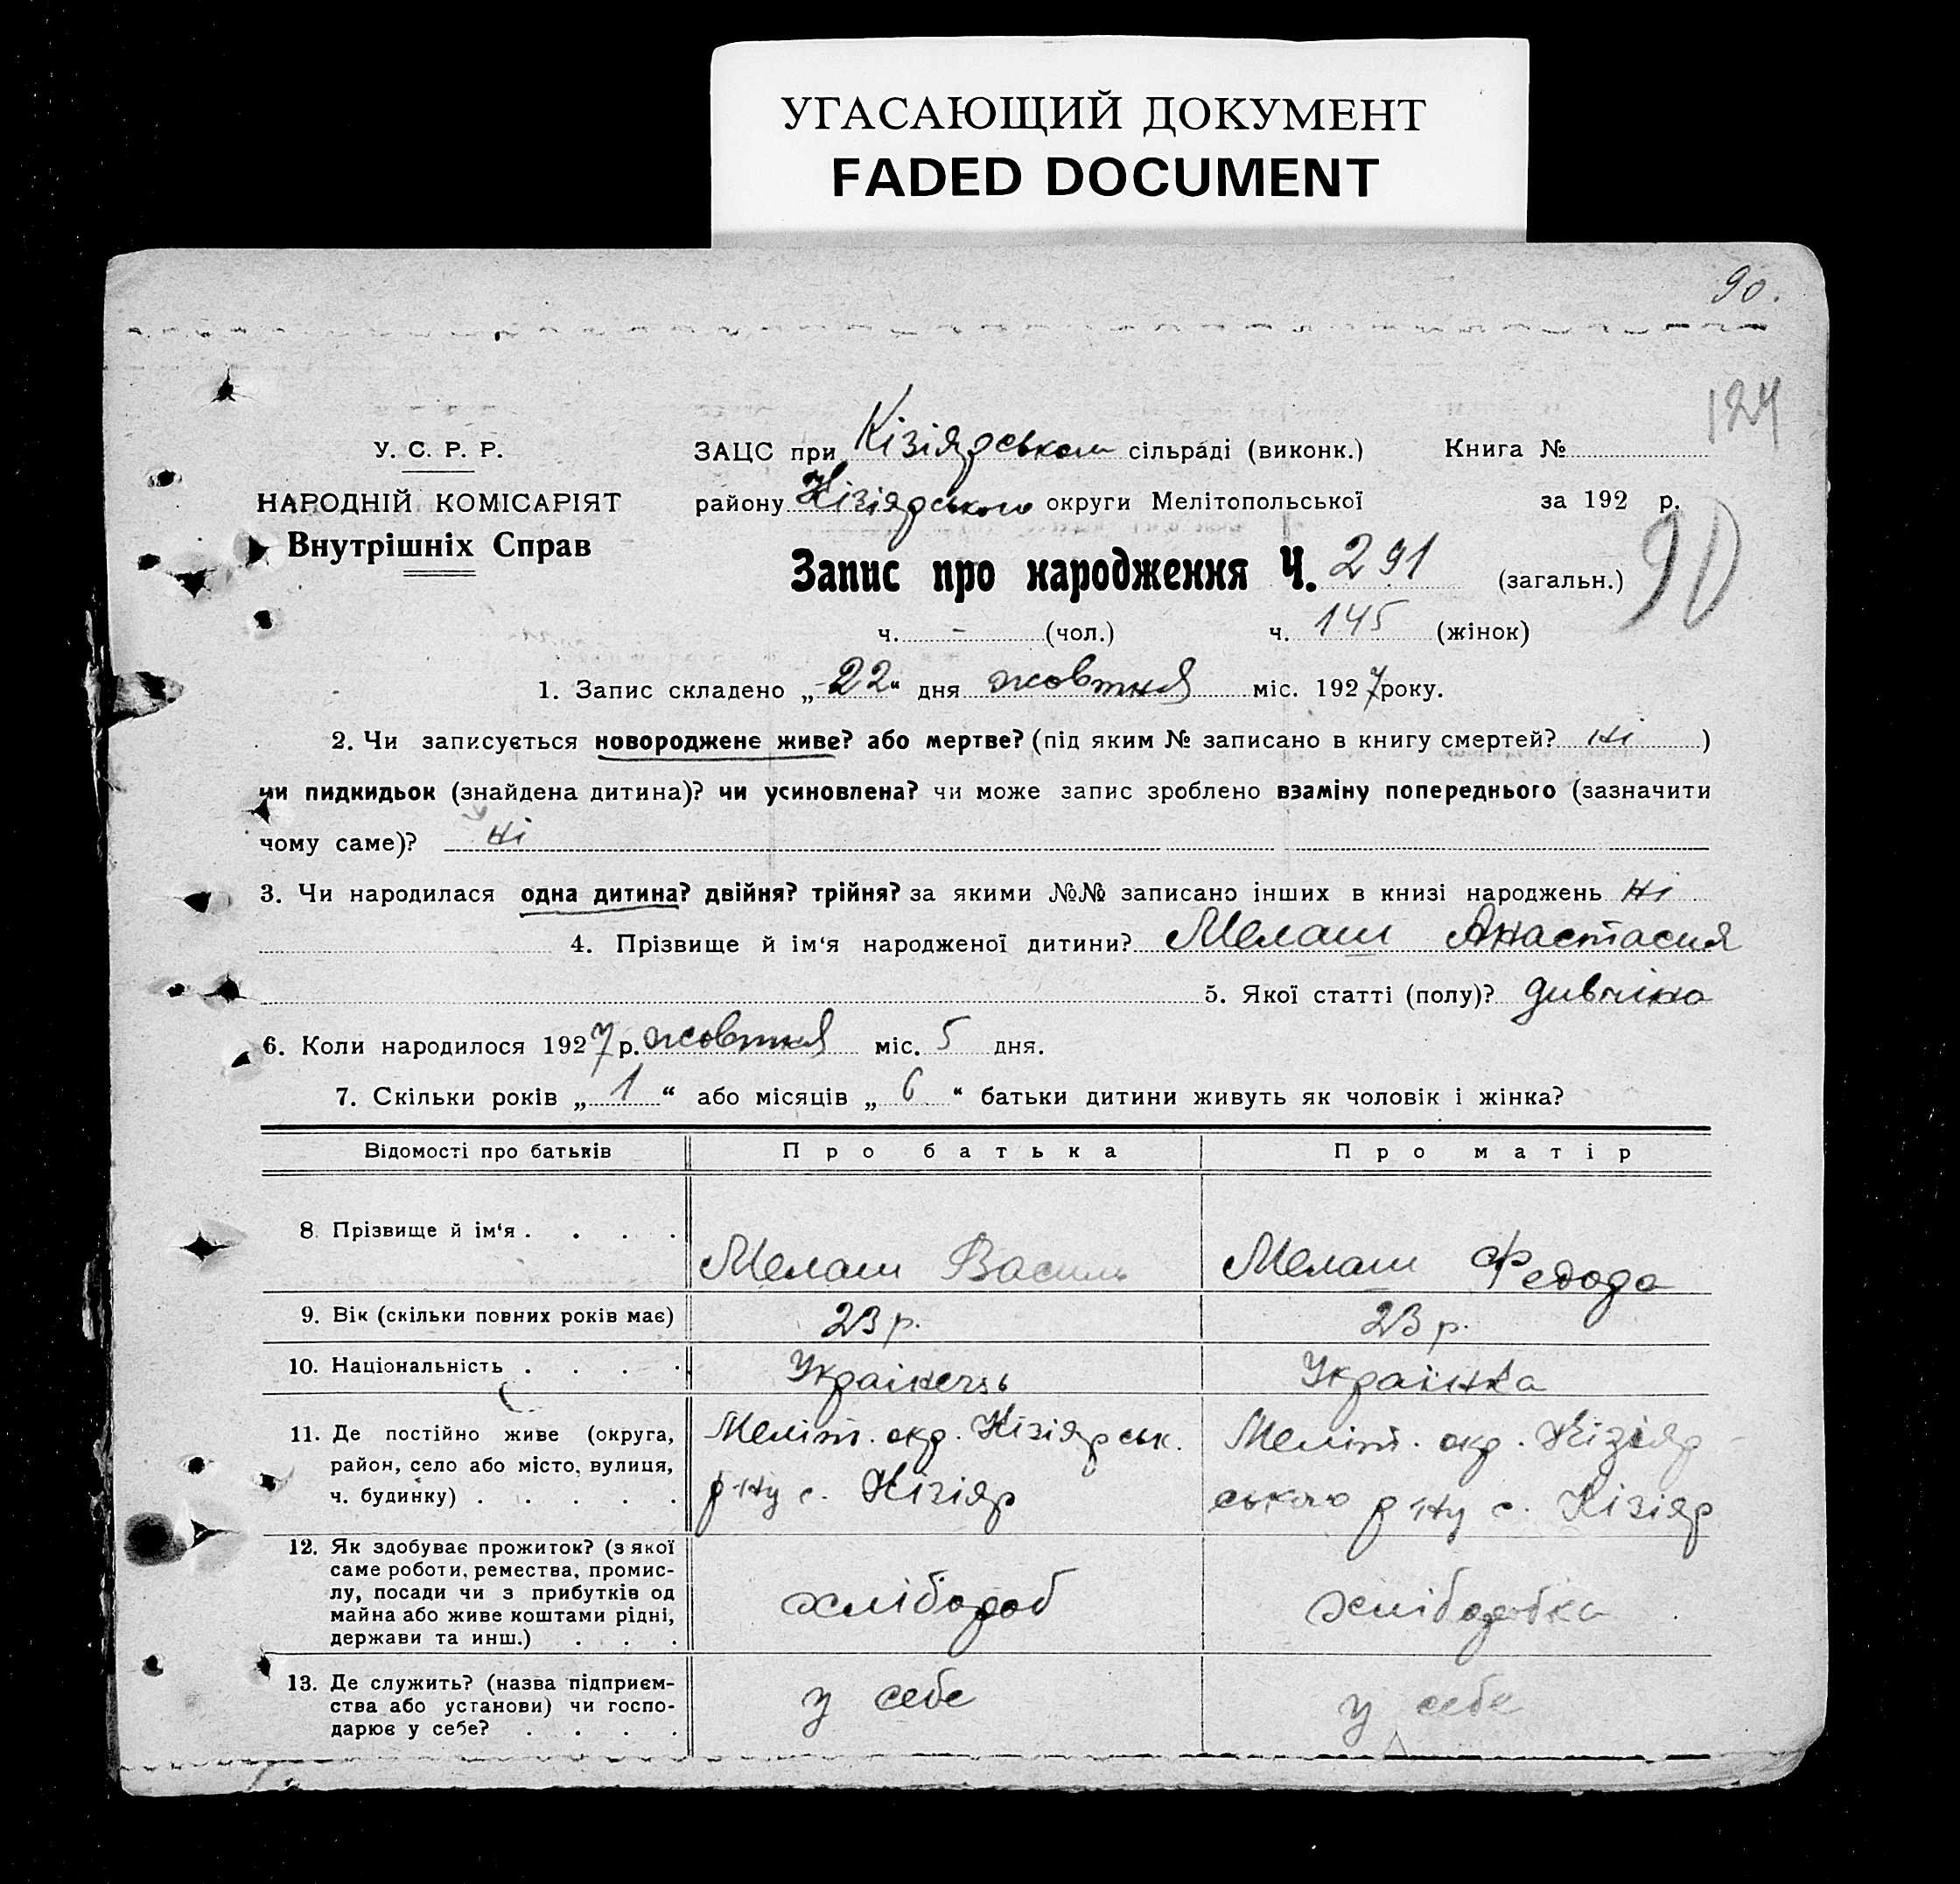 УГАСАЮЩИЙ ДОКУМЕНТ
FADED DOCUMENT
90.
124
У. С. Р. Р.
НАРОДНІЙ КОМІСАРІЯТ
Внутрішніх Справ
ЗАЦС при Кізіярськом сільра́ді (виконк.) Книга №
району Кізіярського округи Мелітопольської за 192 р.
90
Запис про народження Ч. 291 (загальн.)
ч. - (чол.) ч. 145 (жінок)
1. Запис складено „22“ дня жовтня міс. 1927 року.
2. Чи записується новороджене живе? або мертве? (під яким № записано в книгу смертей? Ні )
чи пидкидьок (знайдена дитина)? чи усиновлена? чи може запис зроблено взаміну попереднього (зазначити
чому саме)? Ні
3. Чи народилася одна дитина? двійня? трійня? за якими №№ записано інших в книзі народжень Ні
4. Прізвище й ім‘я народженої дитини? Мелаш Анастасия
5. Якої статті (полу)? дивчіна
6. Коли народилося 1927 р. жовтня міс. 5 дня.
7. Скільки років „ 1 “ або місяців „ 6 “ батьки дитини живуть як чоловік і жінка?
Відомості про батьків Про батька Про матір
8. Прізвище й ім‘я . . . . Мелаш Василь Мелаш Федода
9. Вік (скільки повних років має) 23 р. 23 р.
10. Національність . . . . Українець Українка
11. Де постійно живе (округа, район, село або місто, вулиця, ч. будинку) . . . . .
Меліт. окр. Кізіярськ.
р-ну с. Кізіяр
Меліт. окр. Кізіяр-
ського р-ну с. Кізіяр
12. Як здобуває прожиток? (з якої
саме роботи, ремества, промис-
лу, посади чи з прибутків од
майна або живе коштами рідні,
держави та инш.) . . .
хлібороб хліборобка
13. Де служить? (назва підприєм-
ства або установи) чи госпо-
дарює у себе? . . . .
у себе у себе